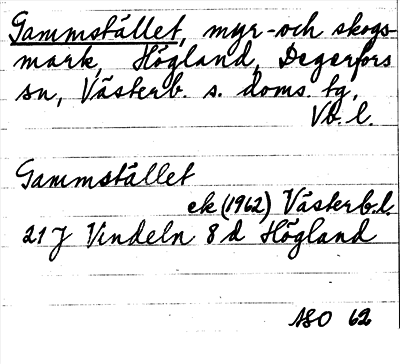 Gammstället, myr- och skogs-
mark, Högland, Degerfors
sn, Västerb. s. doms. tg,
Vb. l.
Gammstället
ek (1962) Västerb.l.
21 J Vindeln 8 d Högland
NSO 62